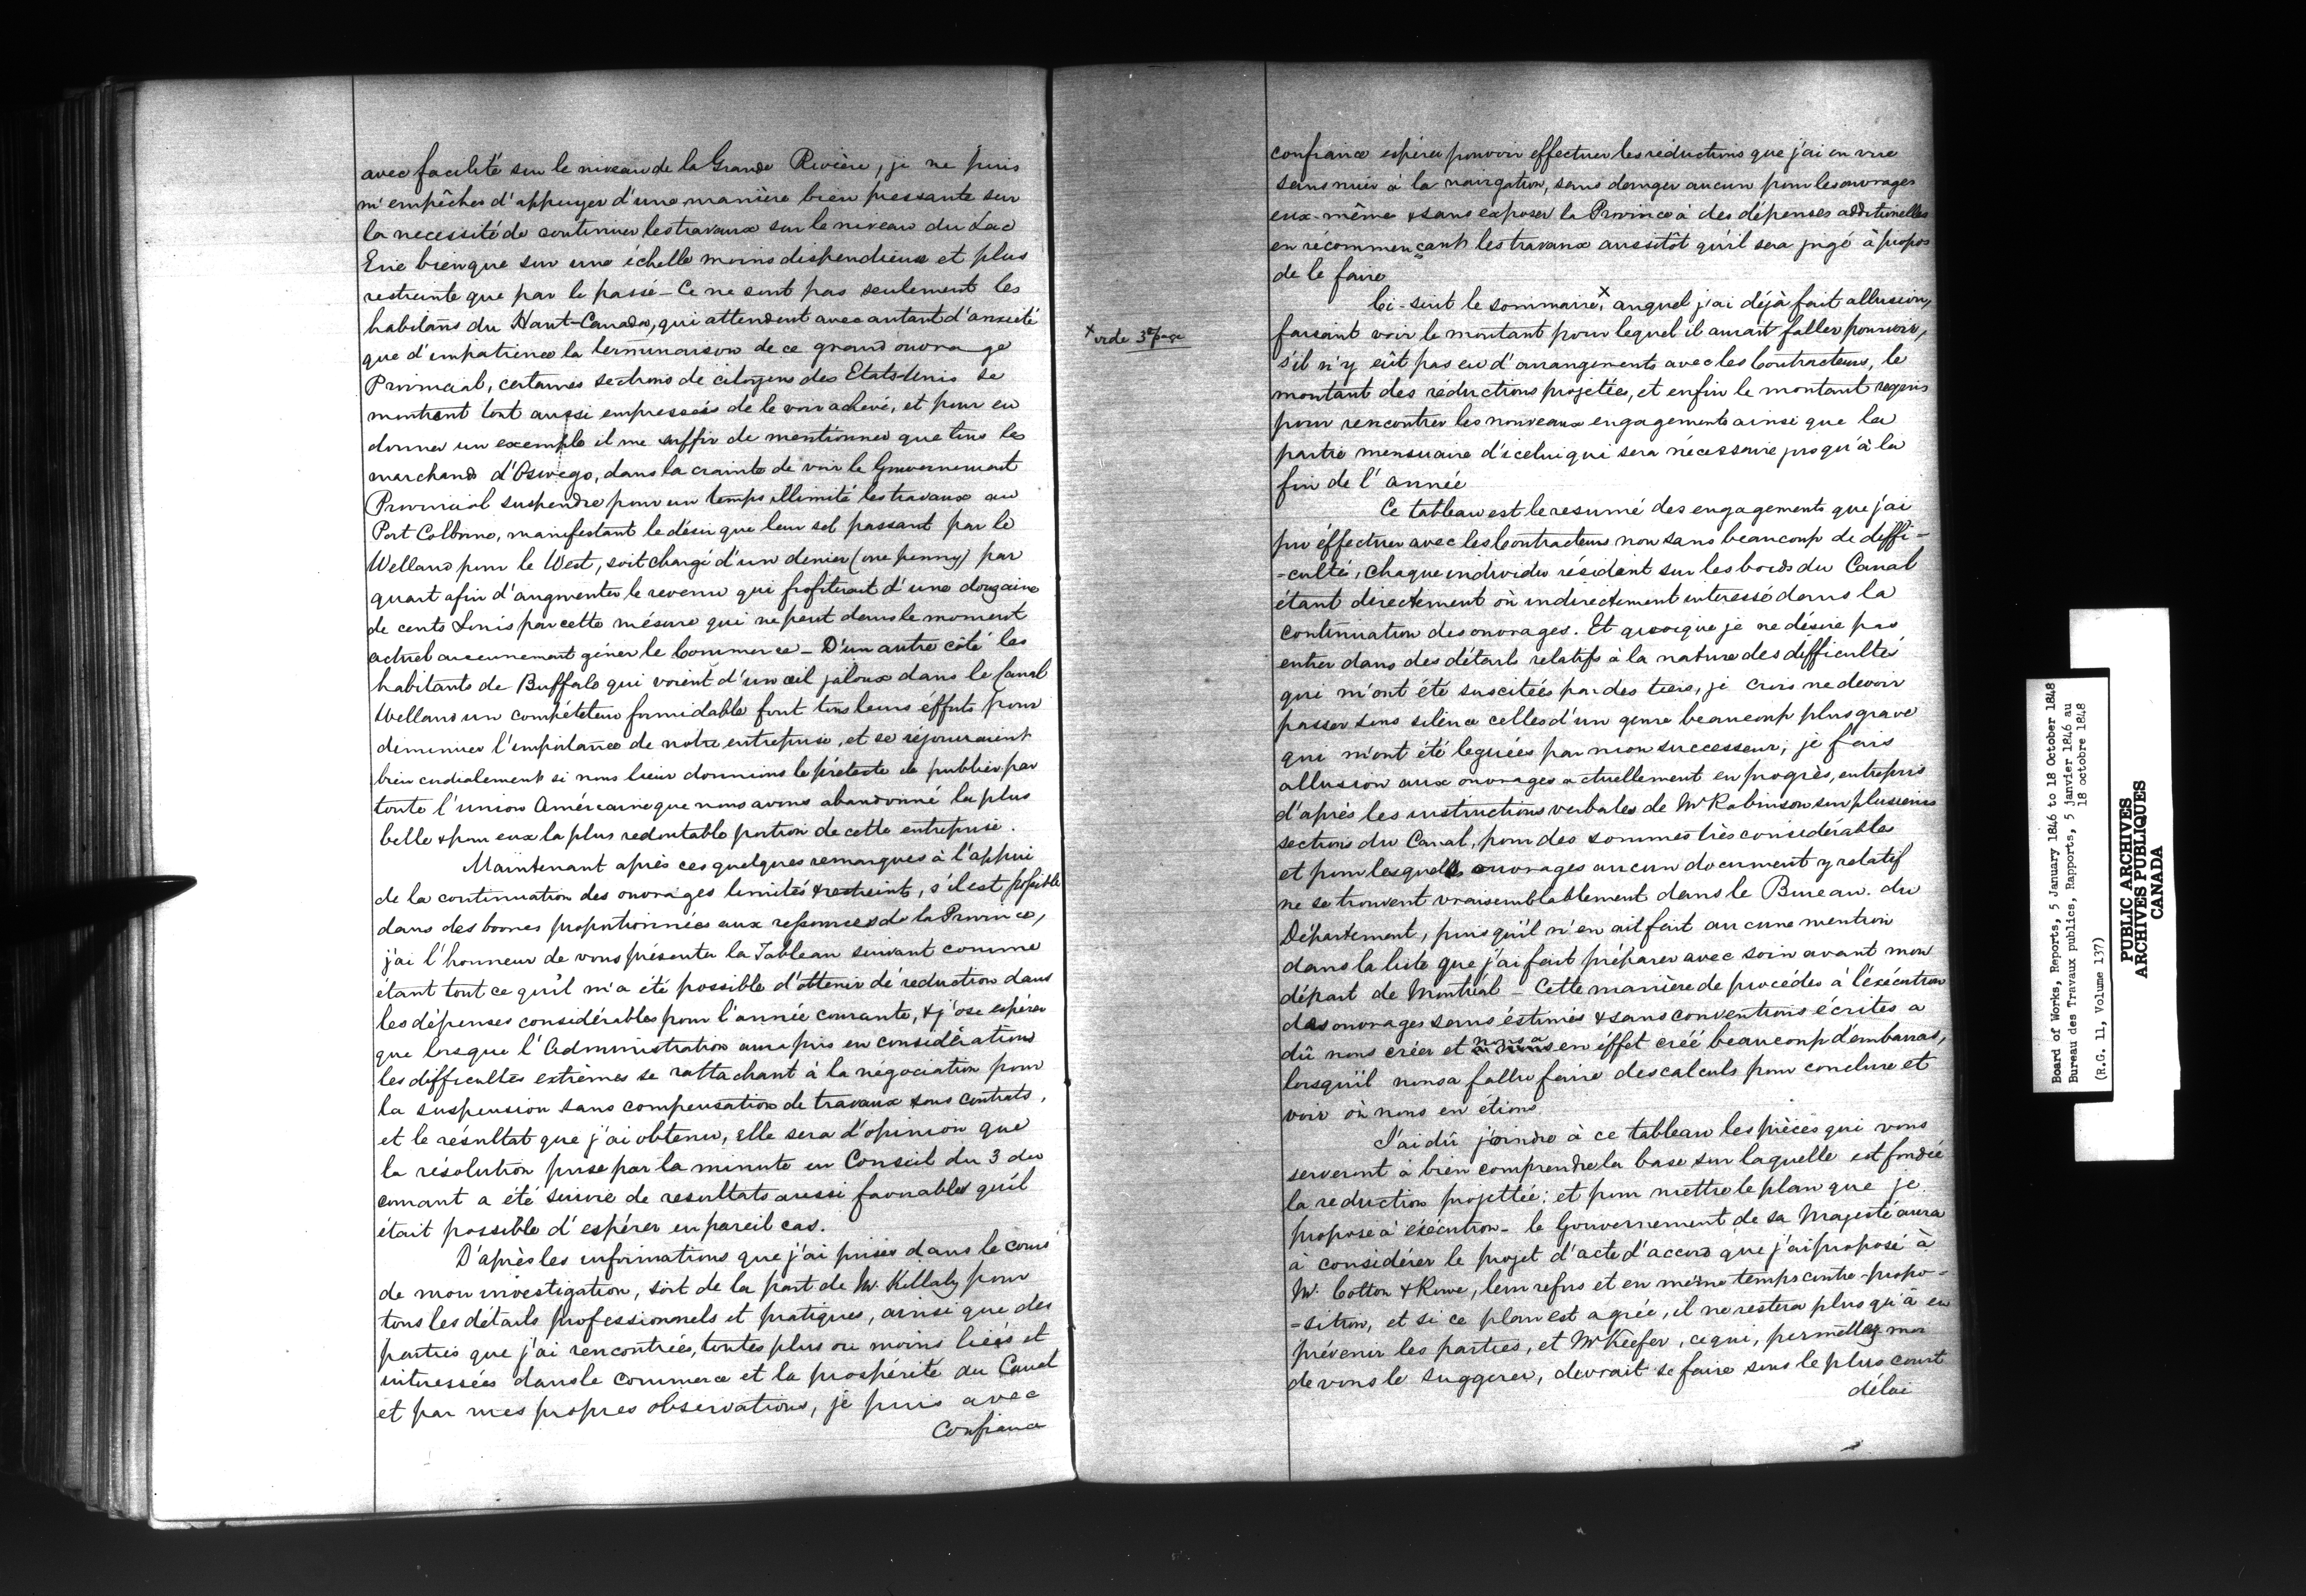 avec facilité sur le niveau de la Grande Rivière, je ne puis
m'empêcher d'appuyer d'une manière bien pressante sur
la necessité de continuer les travaux sur le niveau du Lac
Erie bien que sur une échelle moins dispendieuse et plus
restreinte que par le passé – Ce ne sont pas seulement les
habitans du Haut-Canada, qui attendent avec autant d'anxieté
que d'impatience la terminaison de ce grand ouvrage
Provincial, certaines sections de citoyens des Etats-Unis se
montrent tout aussi empressés de le voir achevé, et pour en
donner un exemple il me suffir de mentionner que tous les
marchands d'Oswego, dans la crainte de voir le Gouvernement
Provincial suspendre pour un temps illimité les travaux au
Port Colborne, manifestant le désir que leur sel passant par le
Welland pour le West, soit chargé d'un denier (one penny) par
quart afin d'augmenter le revenu qui profiterait d'une douzaine
de cents Louis par cette mésure qui ne peut dans le moment
actuel aucunement gêner le Commerce – D'un autre côté les
habitants de Buffalo qui voient d'un œil jaloux dans le Canal
Welland un compététeur formidable font tous leurs éfforts pour
diminuer l'importance de notre entreprise, et se réjouiraient
bien cordialement si nous leur donnions le prétexte de publier par
toute l'union Américaine que nous avons abandonné la plus
belle & pour eux la plus redoutable portion de cette entreprise.
Maintenant après ces quelques remarques à l'appui
de la continuation des ouvrages limités & restreints, s'il est possible
dans des bornes proportionnées aux ressources de la Province,
j'ai l'honneur de vous présenter la Tableau suivant comme
étant tout ce qu'il m'a été possible d'obtenir de réduction dans
les dépenses considérables pour l'année courante, & j'ose espérer
que lorsque l'Administration aura pris en considérations
les difficultés extrêmes se rattachant à la négociation pour
la suspension sans compensation de travaux sous contrats,
et le résultat que j'ai obtenu, elle sera d'opinion que
la résolution prise par la minute en Conseil du 3 du
courant a été suivie de resultats aussi favorables qu'il
était possible d'espérer en pareil cas.
D'après les informations que j'ai prises dans le cours
de mon investigation, soit de la part de Mr. Killaly pour
tous les détails professionnels et pratiques, ainsi que des
parties que j'ai rencontrées, toutes plus ou moins liées et
intéressées dans le commerce et la prospérité du Canal
et par mes propres observations, je puis avec
Confiance
confiance espérer pouvoir effectuer les réductions que j'ai en vue
sans nuir à la navigation, sans danger aucun pour les ouvrages
eux-même & sans exposer la Province à des dépenses additionelles
en récommençant les travaux aussitôt qu'il sera jugé à propos
de le faire
Ci-suit le sommaire,x auquel j'ai déjà fait allusion,
x vide 3e page
faisant voir le montant pour lequel il aurait faller pourvoir,
s'il n'y eût pas eu d'arrangements avec les Contracteurs, le
montant des réductions projetées, et enfin le montant requis
pour rencontrer les nouveaux engagements ainsi que la
partie mensuaire d'icelui qui sera nécessaire jusqu'à la
fin de l'année
Ce tableau est le resumé des engagements que j'ai
pu éffectuer avec les Contracteurs non sans beaucoup de diffi-
-culté, chaque individu résidant sur les bords du Canal
étant directement où indirectement interessé dans la
continuation des ouvrages. Et quoique je ne désire pas
entrer dans des détails relatifs à la nature des difficultés
qui m'ont été suscitées par des tiers, je crois ne devoir
passer sous silence celles d'un genre beaucoup plus grave
qui m'ont été leguées par mon successeur; je fais
allusion aux ouvrages actuellement en progrès, entrepris
d'après les instructions verbales de Mr Robinson sur plusieurs
sections du Canal, pour des sommes très considérables
et pour lesquels ouvrages aucun document y relatif
ne se trouvent vraisemblablement dans le Bureau du
Département, puisqu'il n'en ait fait aucune mention
dans la liste que j'ai fait préparer avec soin avant mon
départ de Montréal – Cette manière de procédés à l'éxécution
des ouvrages sans éstimés & sans conventions écrites a
dû nous créer et nous a en éffet créé beaucoup d'embarras,
lorsqu'il nous a fallu faire des calculs pour conclure et
voir où nous en etions
J'ai dû joindre à ce tableau les pièces qui vous
serveront à bien comprendre la base sur laquelle est fondée
la reduction projettée; et pour mettre le plan que je
propose à éxécution – le Gouvernement de sa Majesté aura
à considérer le projet d'acte d'accord que j'ai proposé à
Mr. Cotton & Rowe, leur refus et en même temps contre-propo-
=sition, et si ce plan est agrée, il ne restera plus qu'à en
prévenir les parties, et Mr Keefer, ce qui, permettez moi
de vous le suggerer, devrait se faire sous le plus court
délai
Board of Works, Reports, 5 January 1846 to 18 October 1848
Bureau des Travaux publics, Rapports, 5 janvier 1846 au
18 octobre 1848
(R.G. 11, Volume 137)
PUBLIC ARCHIVES
ARCHIVES PUBLIQUES
CANADA